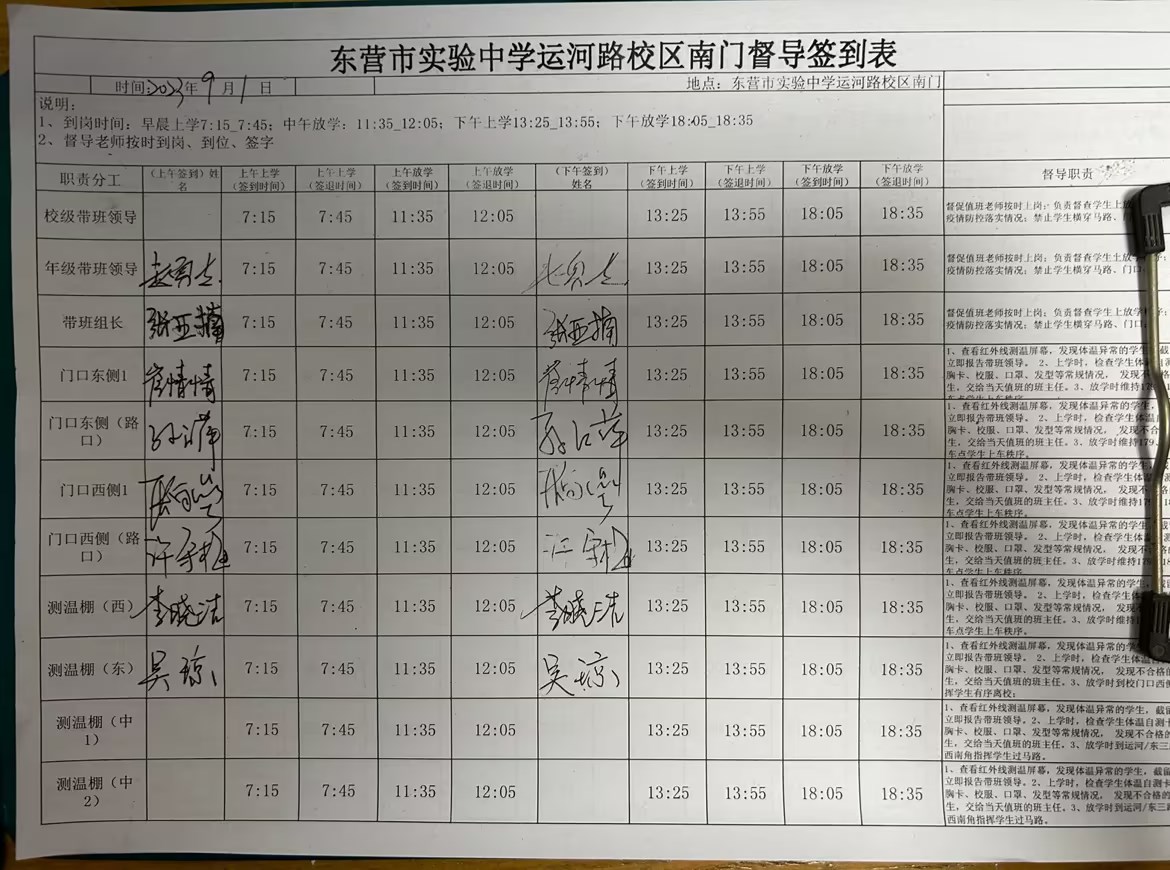 东营市实验中学运河路校区南门督导签到表
时间:2023年9月1日 地点：东营市实验中学运河路校区南门
说明：
1、到岗时间：早晨上学7:15_7:45；中午放学：11:35_12:05；下午上学13:25_13:55；下午放学18:05_18:35
2、督导老师按时到岗、到位、签字
职责分工 （上午签到）姓名 上午上学（签到时间） 上午上学（签退时间） 上午放学（签到时间） 上午放学（签退时间） （下午签到）姓名 下午上学（签到时间） 下午上学（签退时间） 下午放学（签到时间） 下午放学（签退时间） 督导职责
校级带班领导 7:15 7:45 11:35 12:05 13:25 13:55 18:05 18:35
督促值班老师按时上岗；负责督查学生上放
疫情防控落实情况；禁止学生横穿马路、
年级带班领导 7:15 7:45 11:35 12:05 13:25 13:55 18:05 18:35
督促值班老师按时上岗；负责督查学生上放
疫情防控落实情况；禁止学生横穿马路、门口
带班组长 张亚楠 7:15 7:45 11:35 12:05 张亚楠 13:25 13:55 18:05 18:35
督促值班老师按时上岗；负责督查学生上放学
疫情防控落实情况；禁止学生横穿马路、门口
门口东侧1 崔情情 7:15 7:45 11:35 12:05 崔情情 13:25 13:55 18:05 18:35
1、查看红外线测温屏幕，发现体温异常的学生，截
立即报告带班领导。2、上学时，检查学生体温自测
胸卡、校服、口罩、发型等常规情况，发现不
生，交给当天值班的班主任。3、放学时维持17
车点学生上车秩序。
门口东侧（路口） 7:15 7:45 11:35 12:05 13:25 13:55 18:05 18:35
1、查看红外线测温屏幕，发现体温异常的学生，
立即报告带班领导。 2、上学时，检查学生体温
胸卡、校服、口罩、发型等常规情况，发现不合
生，交给当天值班的班主任。3、放学时维持179
车点学生上车秩序。
门口西侧1 7:15 7:45 11:35 12:05 13:25 13:55 18:05 18:35
1、查看红外线测温屏幕，发现体温异常的学生，截
立即报告带班领导。 2、上学时，检查学生体温
胸卡、校服、口罩、发型等常规情况，发现不
生，交给当天值班的班主任。3、放学时维持17
车点学生上车秩序。
门口西侧（路口） 7:15 7:45 11:35 12:05 13:25 13:55 18:05 18:35
1、查看红外线测温屏幕，发现体温异常的学生，截
立即报告带班领导。 2、上学时，检查学生体温
胸卡、校服、口罩、发型等常规情况，发现不
生，交给当天值班的班主任。3、放学时维持17
车点学生上车秩序。
测温棚（西） 李晓洁 7:15 7:45 11:35 12:05 李晓洁 13:25 13:55 18:05 18:35
1、查看红外线测温屏幕，发现体温异常的学生，截
立即报告带班领导。 2、上学时，检查学生体温
胸卡、校服、口罩、发型等常规情况，发现
生，交给当天值班的班主任。3、放学时维持
车点学生上车秩序。
测温棚（东） 吴琼 7:15 7:45 11:35 12:05 吴琼 13:25 13:55 18:05 18:35
1、查看红外线测温屏幕，发现体温异常的学生，截
立即报告带班领导。 2、上学时，检查学生体温
胸卡、校服、口罩、发型等常规情况，发现不合格的
生，交给当天值班的班主任。3、放学时到校门口西侧
挥学生有序离校；
测温棚（中1） 7:15 7:45 11:35 12:05 13:25 13:55 18:05 18:35
1、查看红外线测温屏幕，发现体温异常的学生，截留
立即报告带班领导。2、上学时，检查学生体温自测卡
胸卡、校服、口罩、发型等常规情况， 发现不合格的
生，交给当天值班的班主任。3、放学时到运河/东三
西南角指挥学生过马路。
测温棚（中2） 7:15 7:45 11:35 12:05 13:25 13:55 18:05 18:35
1、查看红外线测温屏幕，发现体温异常的学生，截留
立即报告带班领导。2、上学时，检查学生体温自测卡
胸卡、校服、口罩、发型等常规情况， 发现不合格的
生，交给当天值班的班主任。3、放学时到运河/东三
西南角指挥学生过马路。